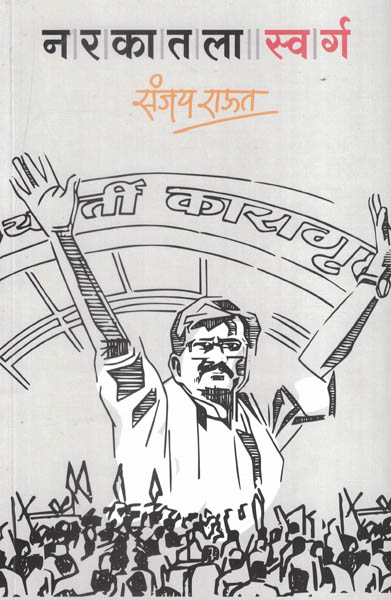 न|र|का|त|ला||स्व|र्ग
संजय राऊत
र्ती कारागृ